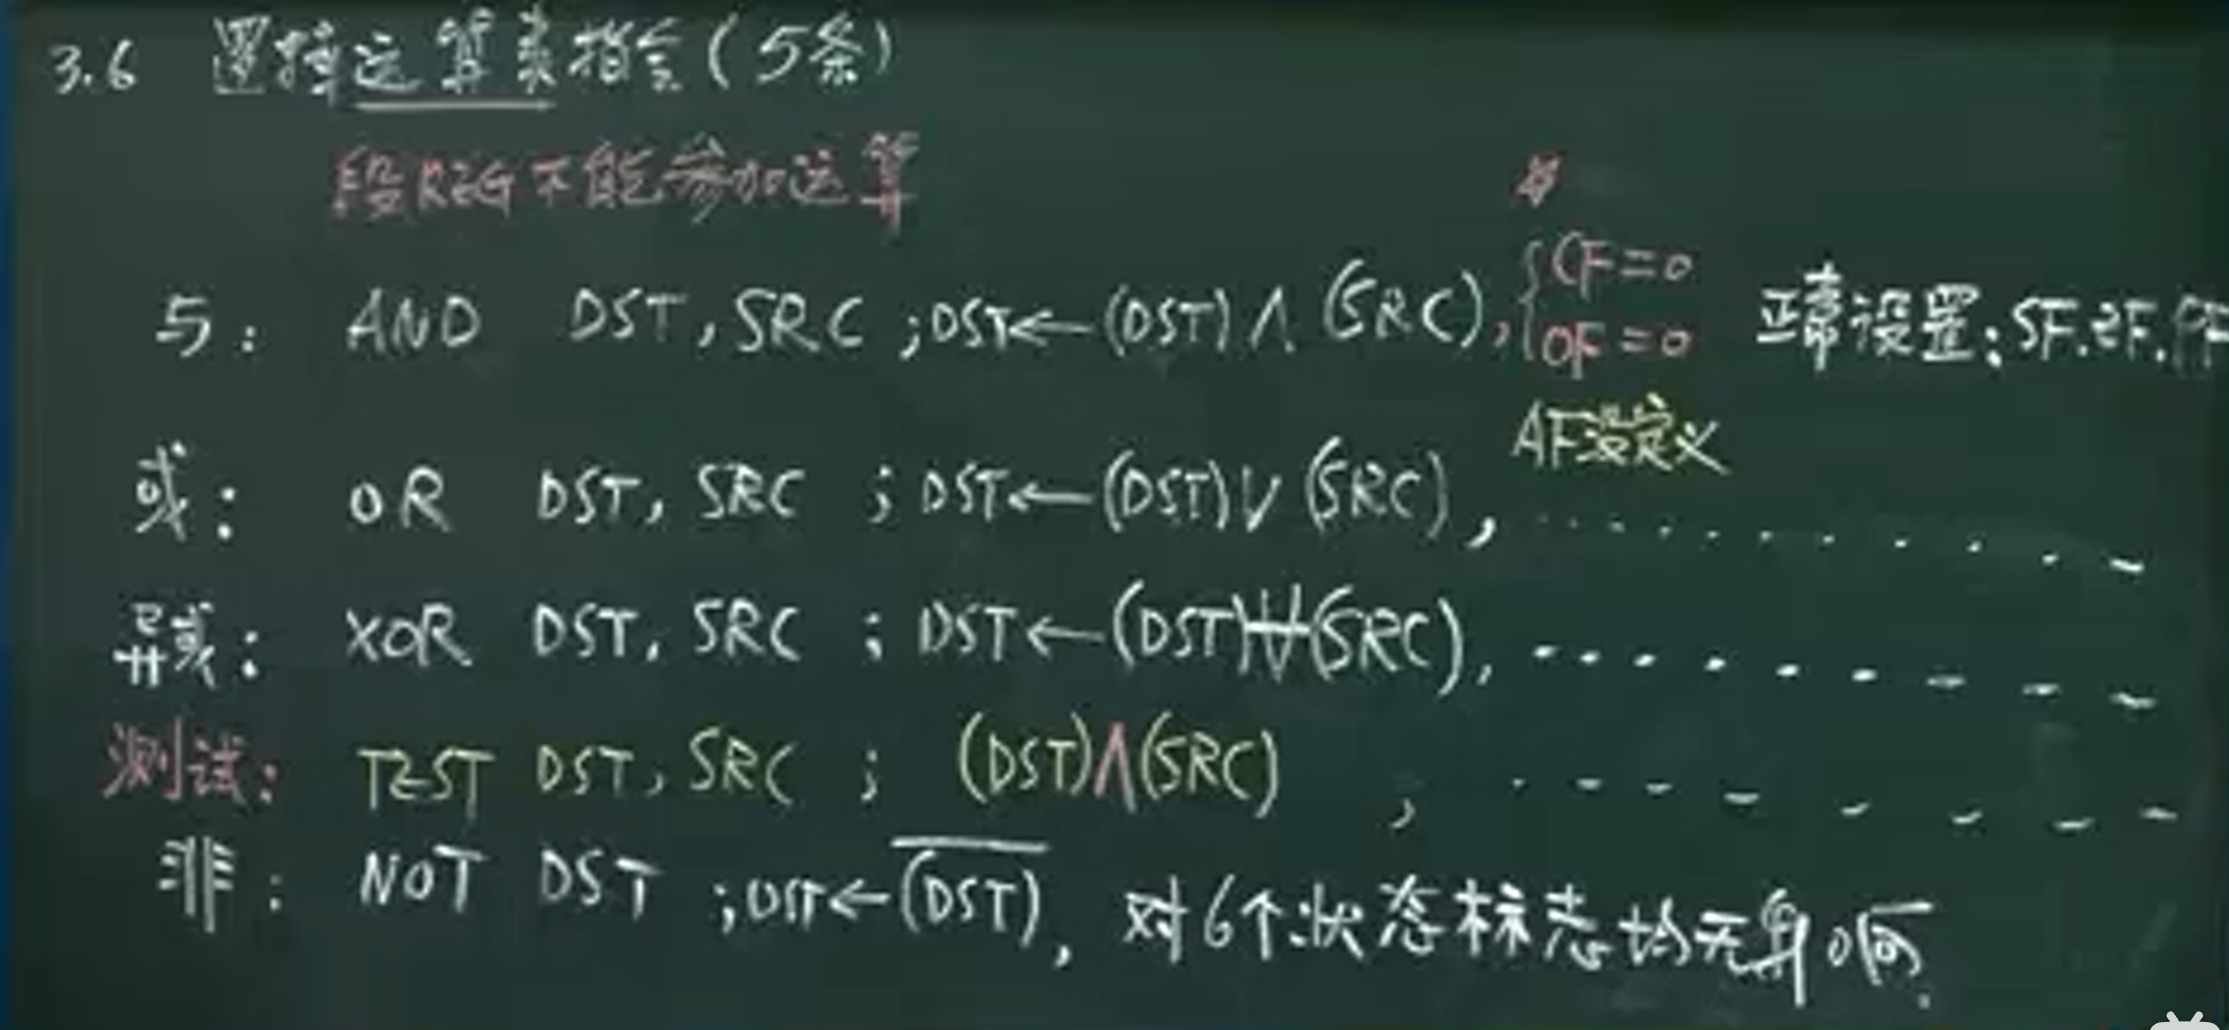 3.6 逻辑运算类指令(5条)
段REG不能参加运算
CF=0
与: AND DST,SRC ;DST←(DST)∧(SRC), 正常设置:SF.ZF.PF
OF=0
AF没定义
或: OR DST, SRC ; DST←(DST)∨(SRC), ...........
异或: XOR DST, SRC ; DST←(DST)⊻(SRC), .........
测试: TEST DST, SRC ; (DST)∧(SRC) , ........
非: NOT DST ;DST←\overline{(DST)}, 对6个状态标志均无影响.